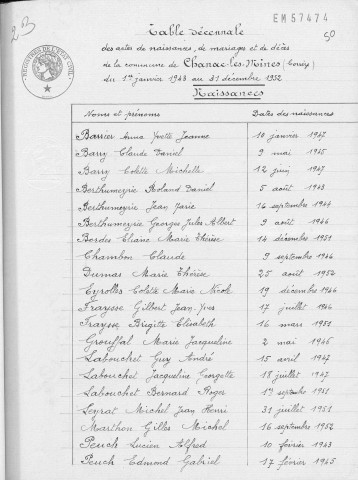 2B
EM57474
50
Table Décennale
des actes de naissance, de mariage et de décès
de la commune de Chanac-les-Mines (Corrèze)
du 1er janvier 1943 au 31 décembre 1952
Naissances
Noms et prénoms Dates des naissances
Barrier Anna Yvette Jeanne 10 janvier 1947
Barry Claude Daniel 9 mai 1945
Barry Colette Michelle 12 juin 1947
Berthumeyrie Roland Daniel 5 août 1943
Berthumeyrie Jean Marie 16 septembre 1944
Berthumeyrie Georges Jules Albert 9 août 1946
Bordes Eliane Marie Thérèse 14 décembre 1951
Chambon Claude 9 septembre 1946
Dumas Marie Thérèse 25 août 1952
Eyrolles Colette Marie Nicole 19 décembre 1946
Fraysse Gilbert Jean Yves 17 juillet 1946
Fraysse Brigitte Elisabeth 16 mars 1952
Grouffal Marie Jacqueline 2 mai 1946
Labouchet Guy André 15 avril 1947
Labouchet Jacqueline Georgette 18 juillet 1947
Labouchet Bernard Roger 1er septembre 1951
Leyrat Michel Jean Henri 31 juillet 1951
Marthon Gilles Michel 16 septembre 1952
Peuch Lucien Alfred 10 février 1943
Peuch Edmond Gabriel 17 février 1945